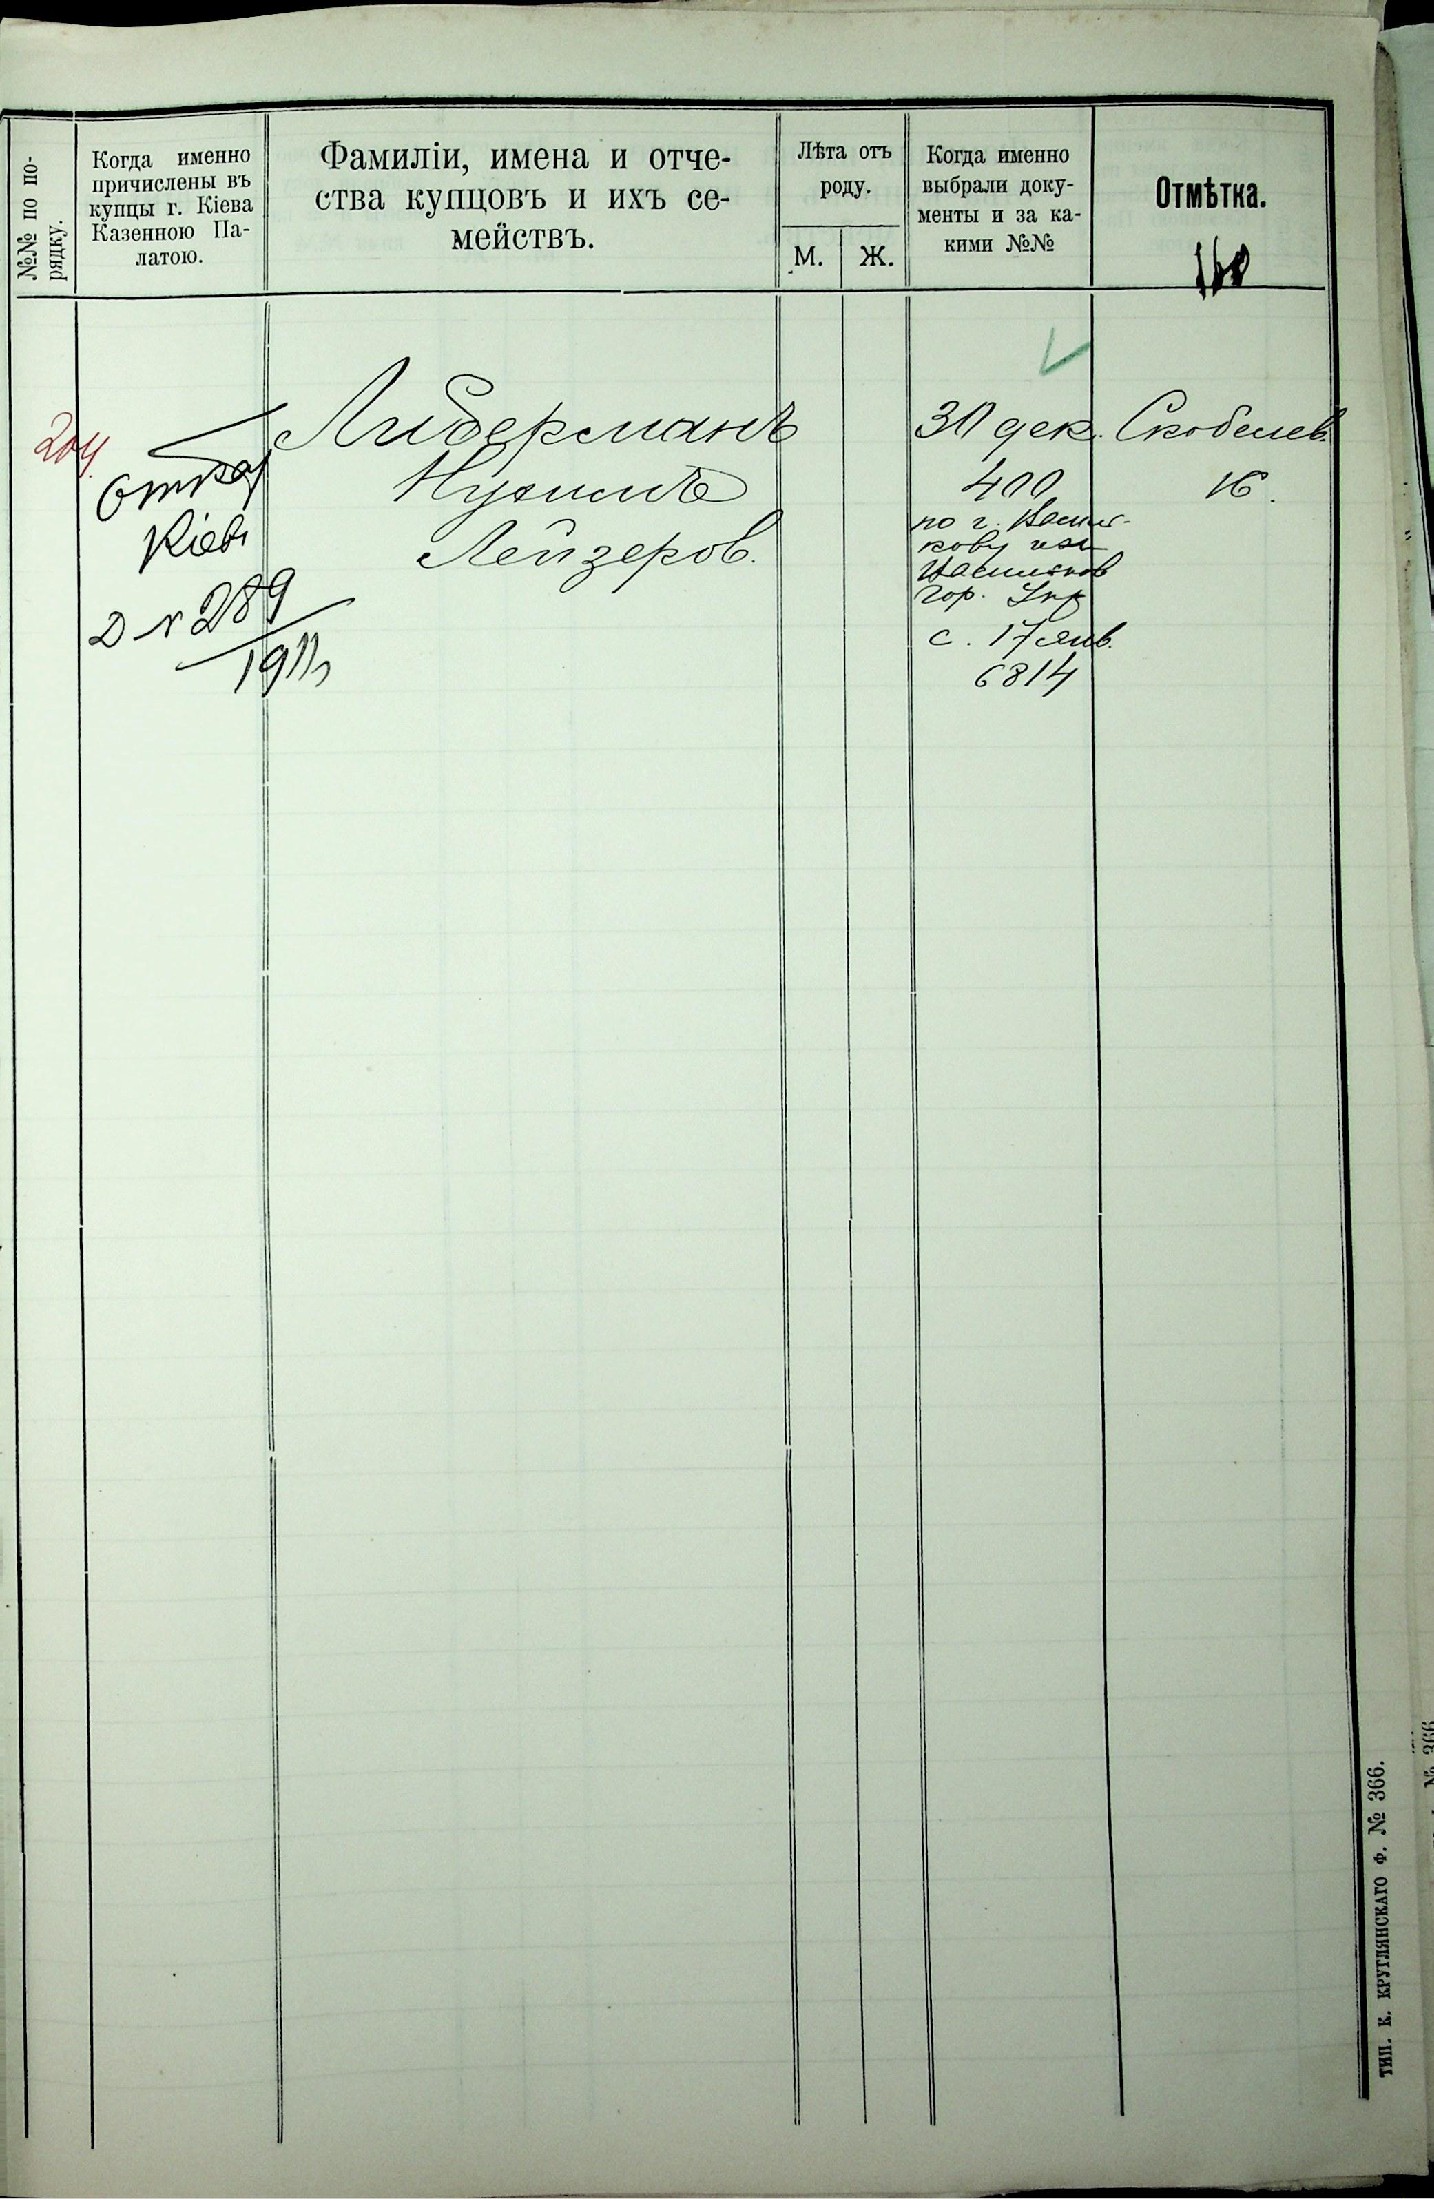 №№ по по-
рядку.
Когда именно
причислены въ
купцы г. Кіева
Казенною Па-
латою.
Фамиліи, имена и отче-
ства купцовъ и ихъ се-
мействъ.
Лѣта отъ
роду.
М.
Ж.
Когда именно
выбрали доку-
менты и за ка-
кими №№
Отмѣтка.
160
204
Кіевъ
289
1911
Либерманъ
Нухимъ
Лейзеров.
30 дек.
400
по г. Василь-
кову изъ
Васильков
гор. Упр
с. 17 янв.
6814
Скобелев.
16.
ТИП. К. КРУГЛЯНСКАГО Ф. № 366.